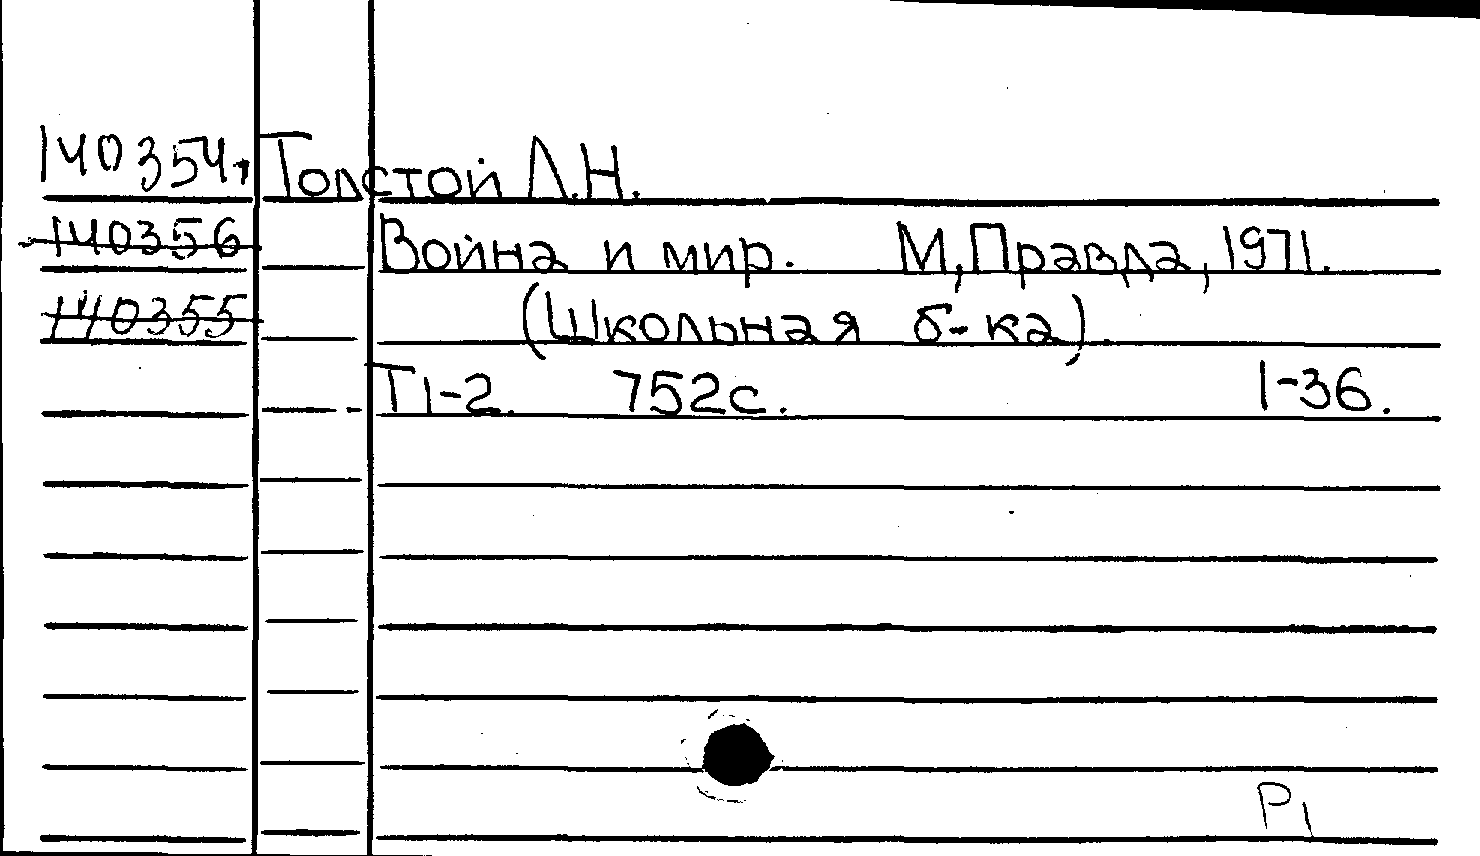 140354, Толстой Л.Н.
140356 Война и мир. М,Правда,1971.
140355 (Школьная б-ка).
Т1-2. 752с. 1-36.
Р1